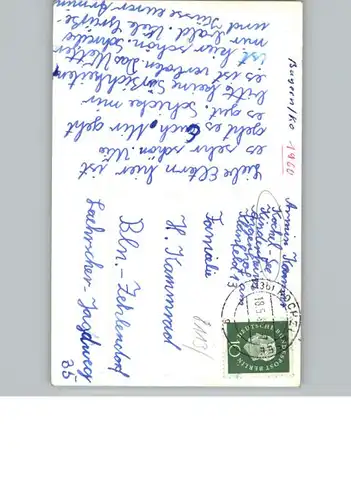 Bayern/Ko -1960
Liebe Eltern hier ist
es sehr schön. Wie
geht es Euch. Mir geht
es gut. Schicke mir
bitte keine Süßichkeiten
es ist verboten. Das Wetter
ist hier schön. Schreibe
mir bald. Viele Grüße
und Küsse eurer Armin
Armin Kammrad
Familie
H. Kammrad
Bln.-Zehlendorf
Loehrscher-Jagdweg
35
18.5.
DEUTSCHE BUNDES
POST BERLIN
10